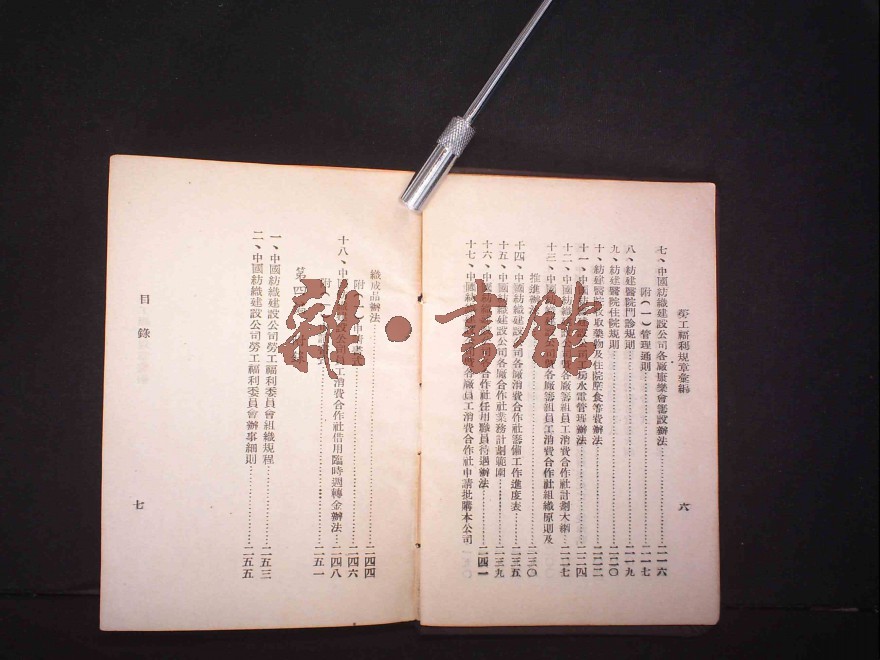 勞工福利規章彙編
六
七、中國紡織建設公司各廠康樂會籌設辦法……二一六
附(一)管理通則……二一七
八、紡建醫院門診規則……二一九
九、紡建醫院住院規則……二二〇
十、紡建醫院收取藥物及住院膳食等費辦法……二二二
十一、中 房水電管理辦法……二二四
十二、中國紡 各廠籌組員工消費合作社計劃大綱……二二七
十三、中國 各廠籌組員工消費合作社組織原則及
推進 ……二三〇
十四、中國紡織建設公司各廠消費合作社籌備工作進度表……二三五
十五、中國紡織建設公司各廠合作社業務計劃範圍……二三九
十六、中國紡 合作社任用職員待遇辦法……二四一
十七、中國紡 各廠員工消費合作社申請批購本公司
織成品辦法……二四四
附 ……二四六
十八、中國 設公司 工消費合作社借用臨時週轉金辦法……二四八
附 ……二五一
第四
一、中國紡織建設公司勞工福利委員會組織規程……二五三
二、中國紡織建設公司勞工福利委員會辦事細則……二五五
目錄
七
雜·書館